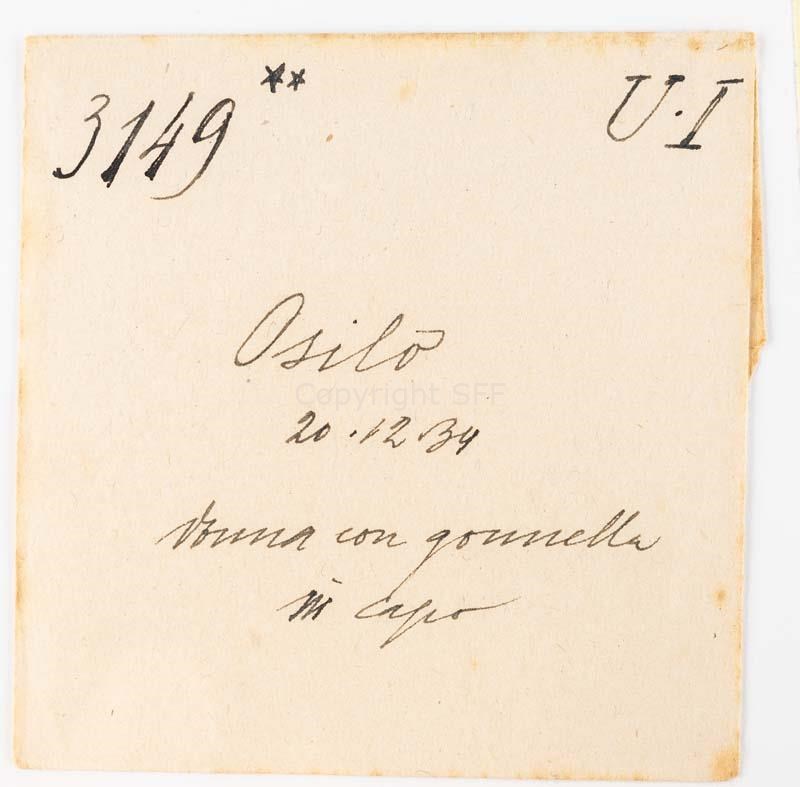 3149 **
U.I
Osilo
Copyright SFF
20.12.34
donna con gonnella
in capo